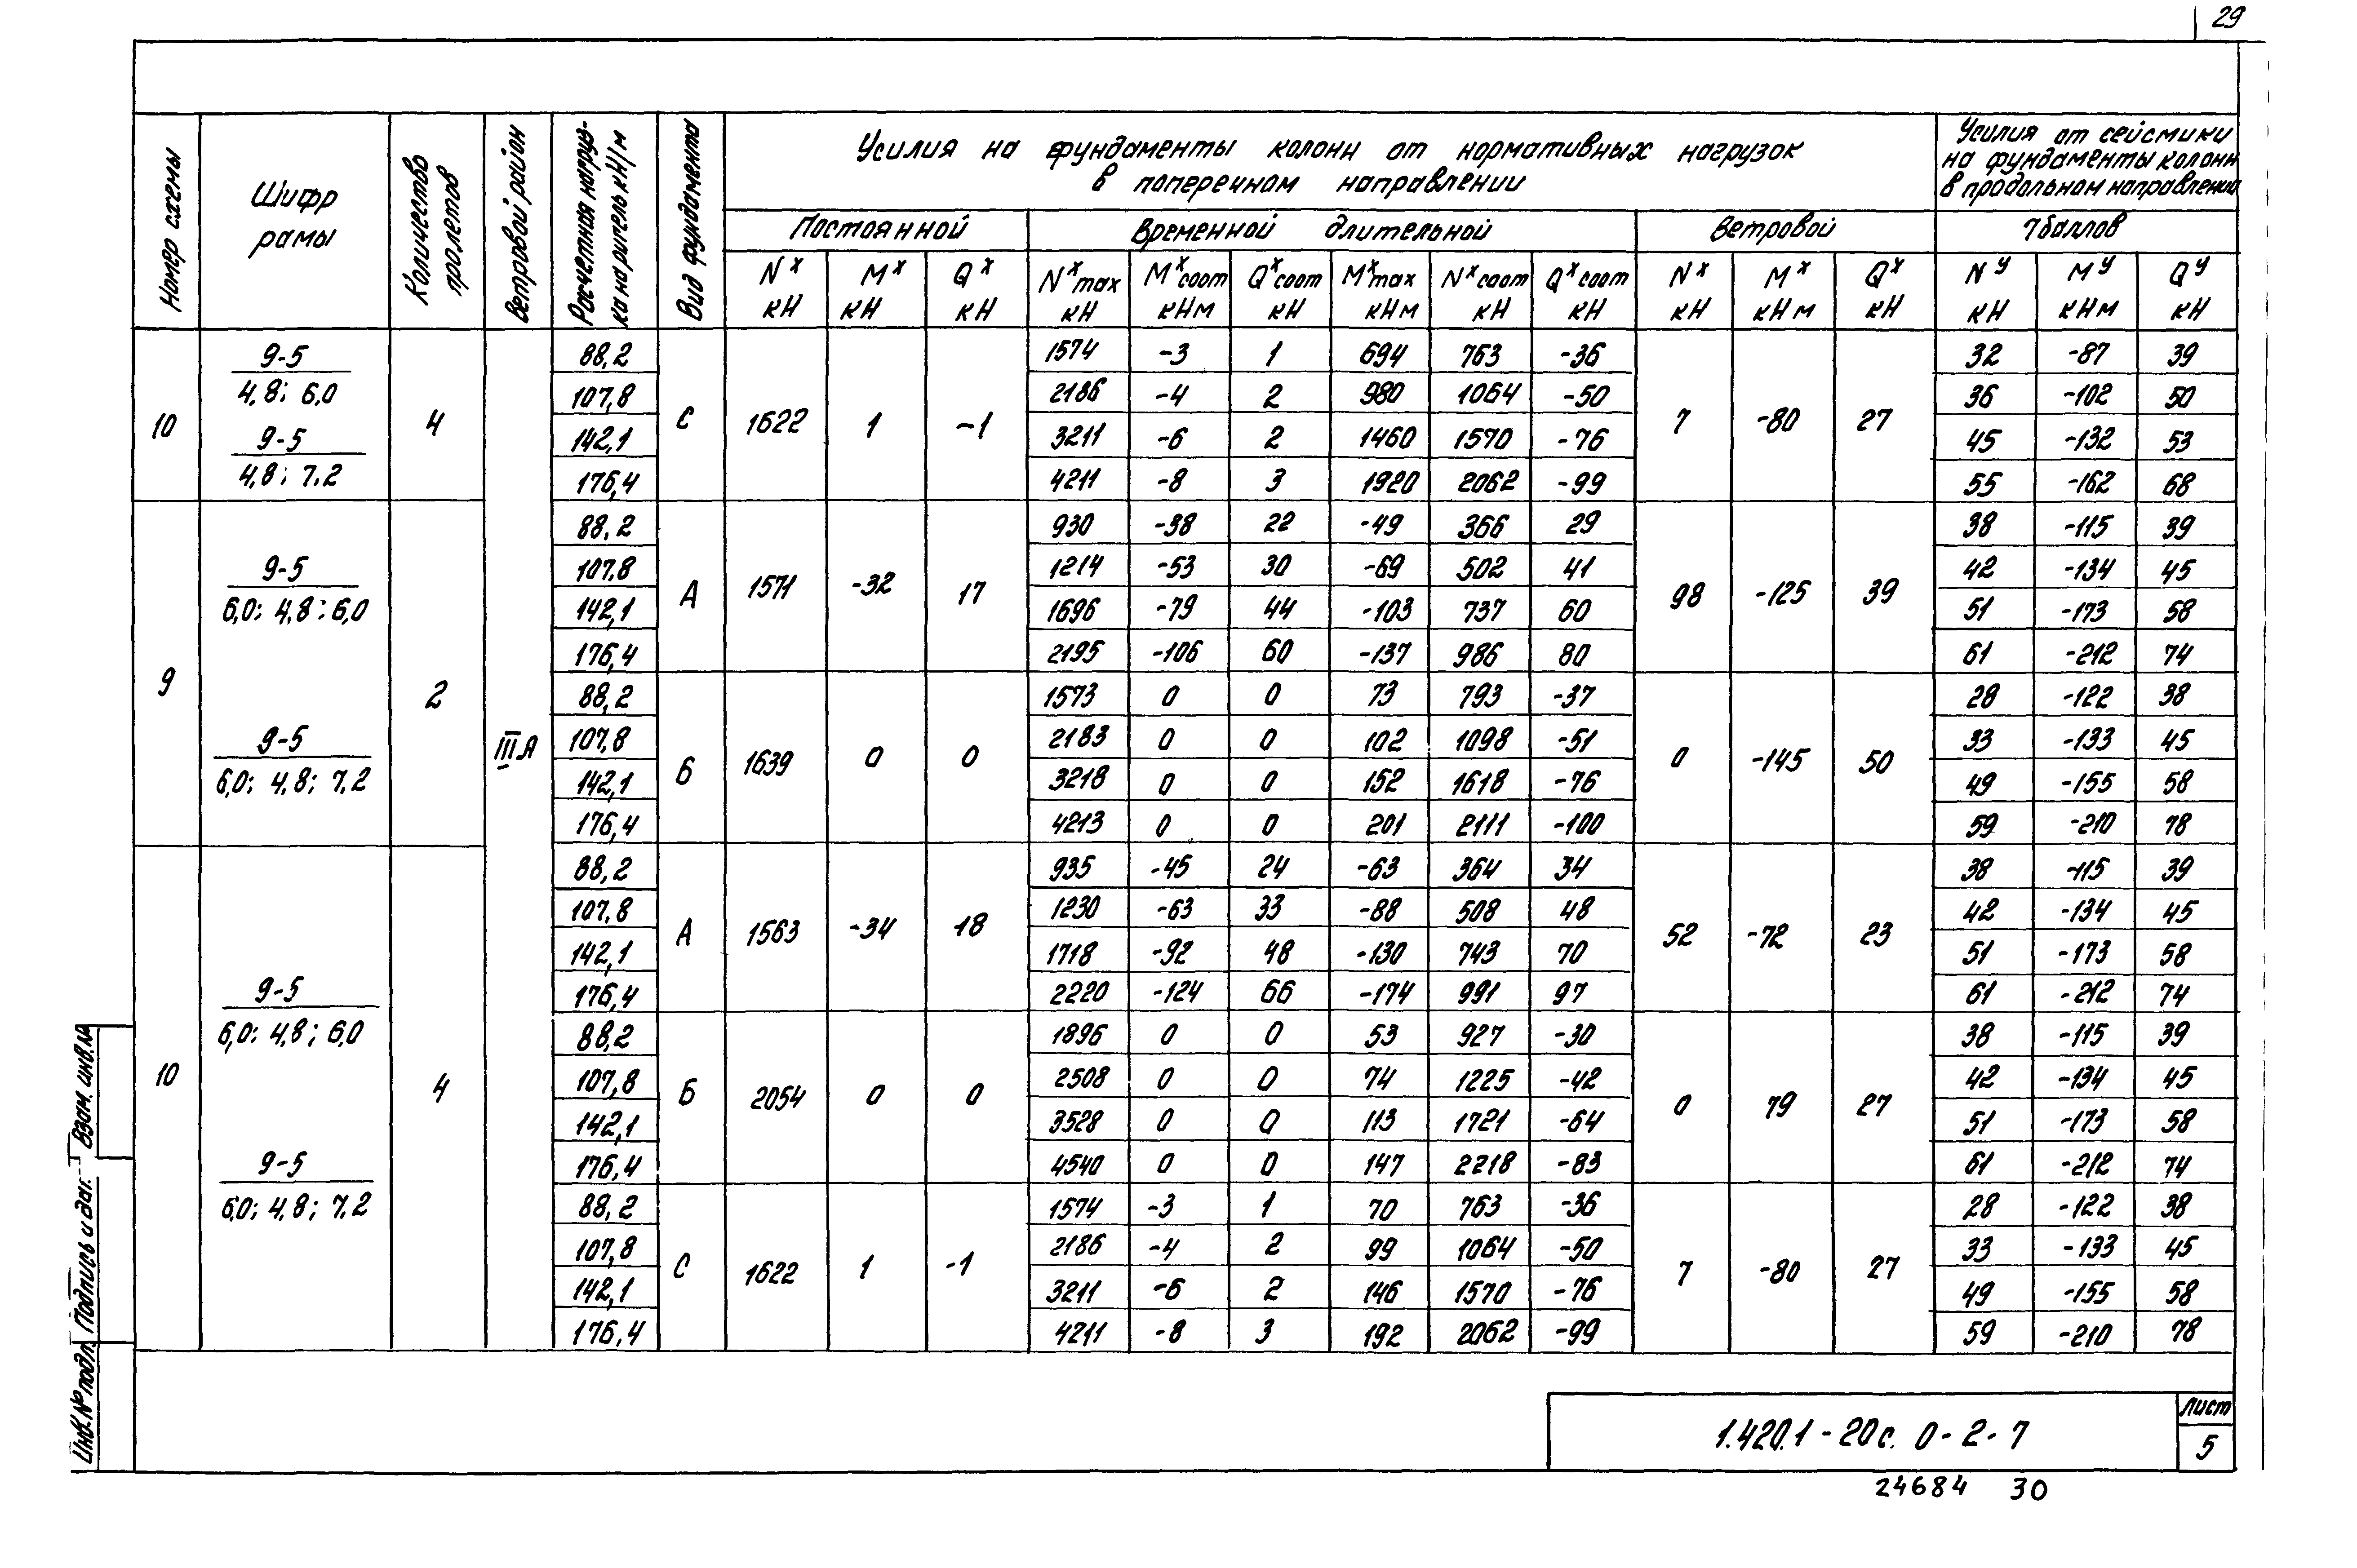 29
Номер схемы
Шифр рамы
Количество пролетов
Ветровой район
Расчетная нагруз-
ка на ригель кН/м
Вид фундамента
Усилия на фундаменты колонн от нормативных нагрузок
в поперечном направлении
Усилия от сейсмики
на фундаменты колонн
в продольном направлении
Постоянной Временной длительной Ветровой 7 баллов
N^x кН M^x кН Q^x кН N^x max кН M^x соот кНм Q^x соот кН M^x max кНм N^x соот кН Q^x соот кН N^x кН M^x кНм Q^x кН N^y кН M^y кНм Q^y кН
10 9-5 / 4,8; 6,0 9-5 / 4,8; 7,2 4 С 1622 1 -1 7 -80 27
88,2 1574 -3 1 694 763 -36 32 -87 39
107,8 2186 -4 2 980 1064 -50 36 -102 50
142,1 3211 -6 2 1460 1570 -76 45 -132 53
176,4 4211 -8 3 1920 2062 -99 55 -162 68
9 9-5 / 6,0; 4,8; 6,0 9-5 / 6,0; 4,8; 7,2 2 IIIА
А 1571 -32 17 98 -125 39
88,2 930 -38 22 -49 366 29 38 -115 39
107,8 1214 -53 30 -69 502 41 42 -134 45
142,1 1696 -79 44 -103 737 60 51 -173 58
176,4 2195 -106 60 -137 986 80 61 -212 74
Б 1639 0 0 0 -145 50
88,2 1573 0 0 73 793 -37 28 -122 38
107,8 2183 0 0 102 1098 -51 33 -133 45
142,1 3218 0 0 152 1618 -76 49 -155 58
176,4 4213 0 0 201 2111 -100 59 -210 78
10 9-5 / 6,0; 4,8; 6,0 9-5 / 6,0; 4,8; 7,2 4
А 1563 -34 18 52 -72 23
88,2 935 -45 24 -63 364 34 38 -115 39
107,8 1230 -63 33 -88 508 48 42 -134 45
142,1 1718 -92 48 -130 743 70 51 -173 58
176,4 2220 -124 66 -174 991 97 61 -212 74
Б 2054 0 0 0 79 27
88,2 1896 0 0 53 927 -30 38 -115 39
107,8 2508 0 0 74 1225 -42 42 -134 45
142,1 3528 0 0 113 1721 -64 51 -173 58
176,4 4540 0 0 147 2218 -83 61 -212 74
С 1622 1 -1 7 -80 27
88,2 1574 -3 1 70 763 -36 28 -122 38
107,8 2186 -4 2 99 1064 -50 33 -133 45
142,1 3211 -6 2 146 1570 -76 49 -155 58
176,4 4211 -8 3 192 2062 -99 59 -210 78
Взам. инв. №
Подпись и дат.
Инв. № подл.
1.420.1-20с. 0-2-7
Лист
5
24684 30